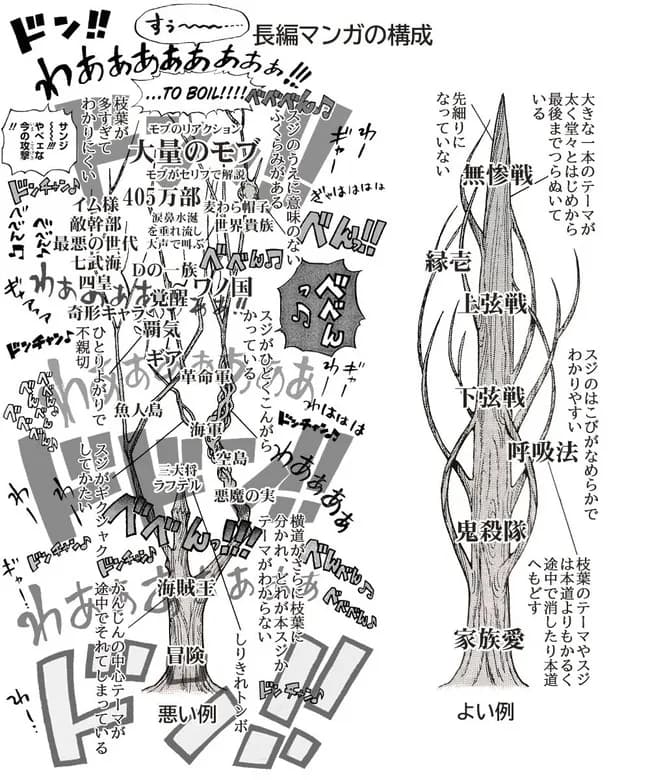 長編マンガの構成
ドン!!
すぅ〜〜〜〜……
わあぁああああぁぁぁ!!!
…TO BOIL!!!!
べべべん♪
サンジ〜〜!!!
やべェな
今の攻撃!!
枝葉が
多すぎて
わかりにくい
モブのリアクション
大量のモブ
モブがセリフで解説
405万部
涙鼻水涎
を垂れ流し
大声で叫ぶ
スジのうえに意味のない
ふくらみがある
ぎゃはははは
麦わら帽子
世界貴族
べんっ!!
イム様
敵幹部
最悪の世代
七武海
四皇
奇形キャラ
Dの一族
覚醒
覇気
ギア
ワノ国
べべん♪
ドンチャン♪
ひとりよがりで
不親切
スジがひどくこんがら
かっている
革命軍
魚人島
海軍
空島
悪魔の実
三大将
ラフテル
わはははは
ドンチャン♪
わあぁぁぁ
スジがギクシャク
してかたい
ドドン!!
べべんっ!!!
横道がさらに枝葉に
分かれ、どれが本スジか
テーマがわからない
べんべん♪
べべべん♪
海賊王
冒険
かんじんの中心テーマが
途中でそれてしまっている
しりきれトンボ
ドンチャン♪
ドン!!
悪い例
大きな一本のテーマが
太く堂々とはじめから
最後までつらぬいて
いる
先細りに
なっていない
無惨戦
縁壱
上弦戦
下弦戦
呼吸法
鬼殺隊
家族愛
スジのはこびがなめらかで
わかりやすい
枝葉のテーマやスジ
は本道よりもかるく
途中で消したり本道
へもどす
よい例